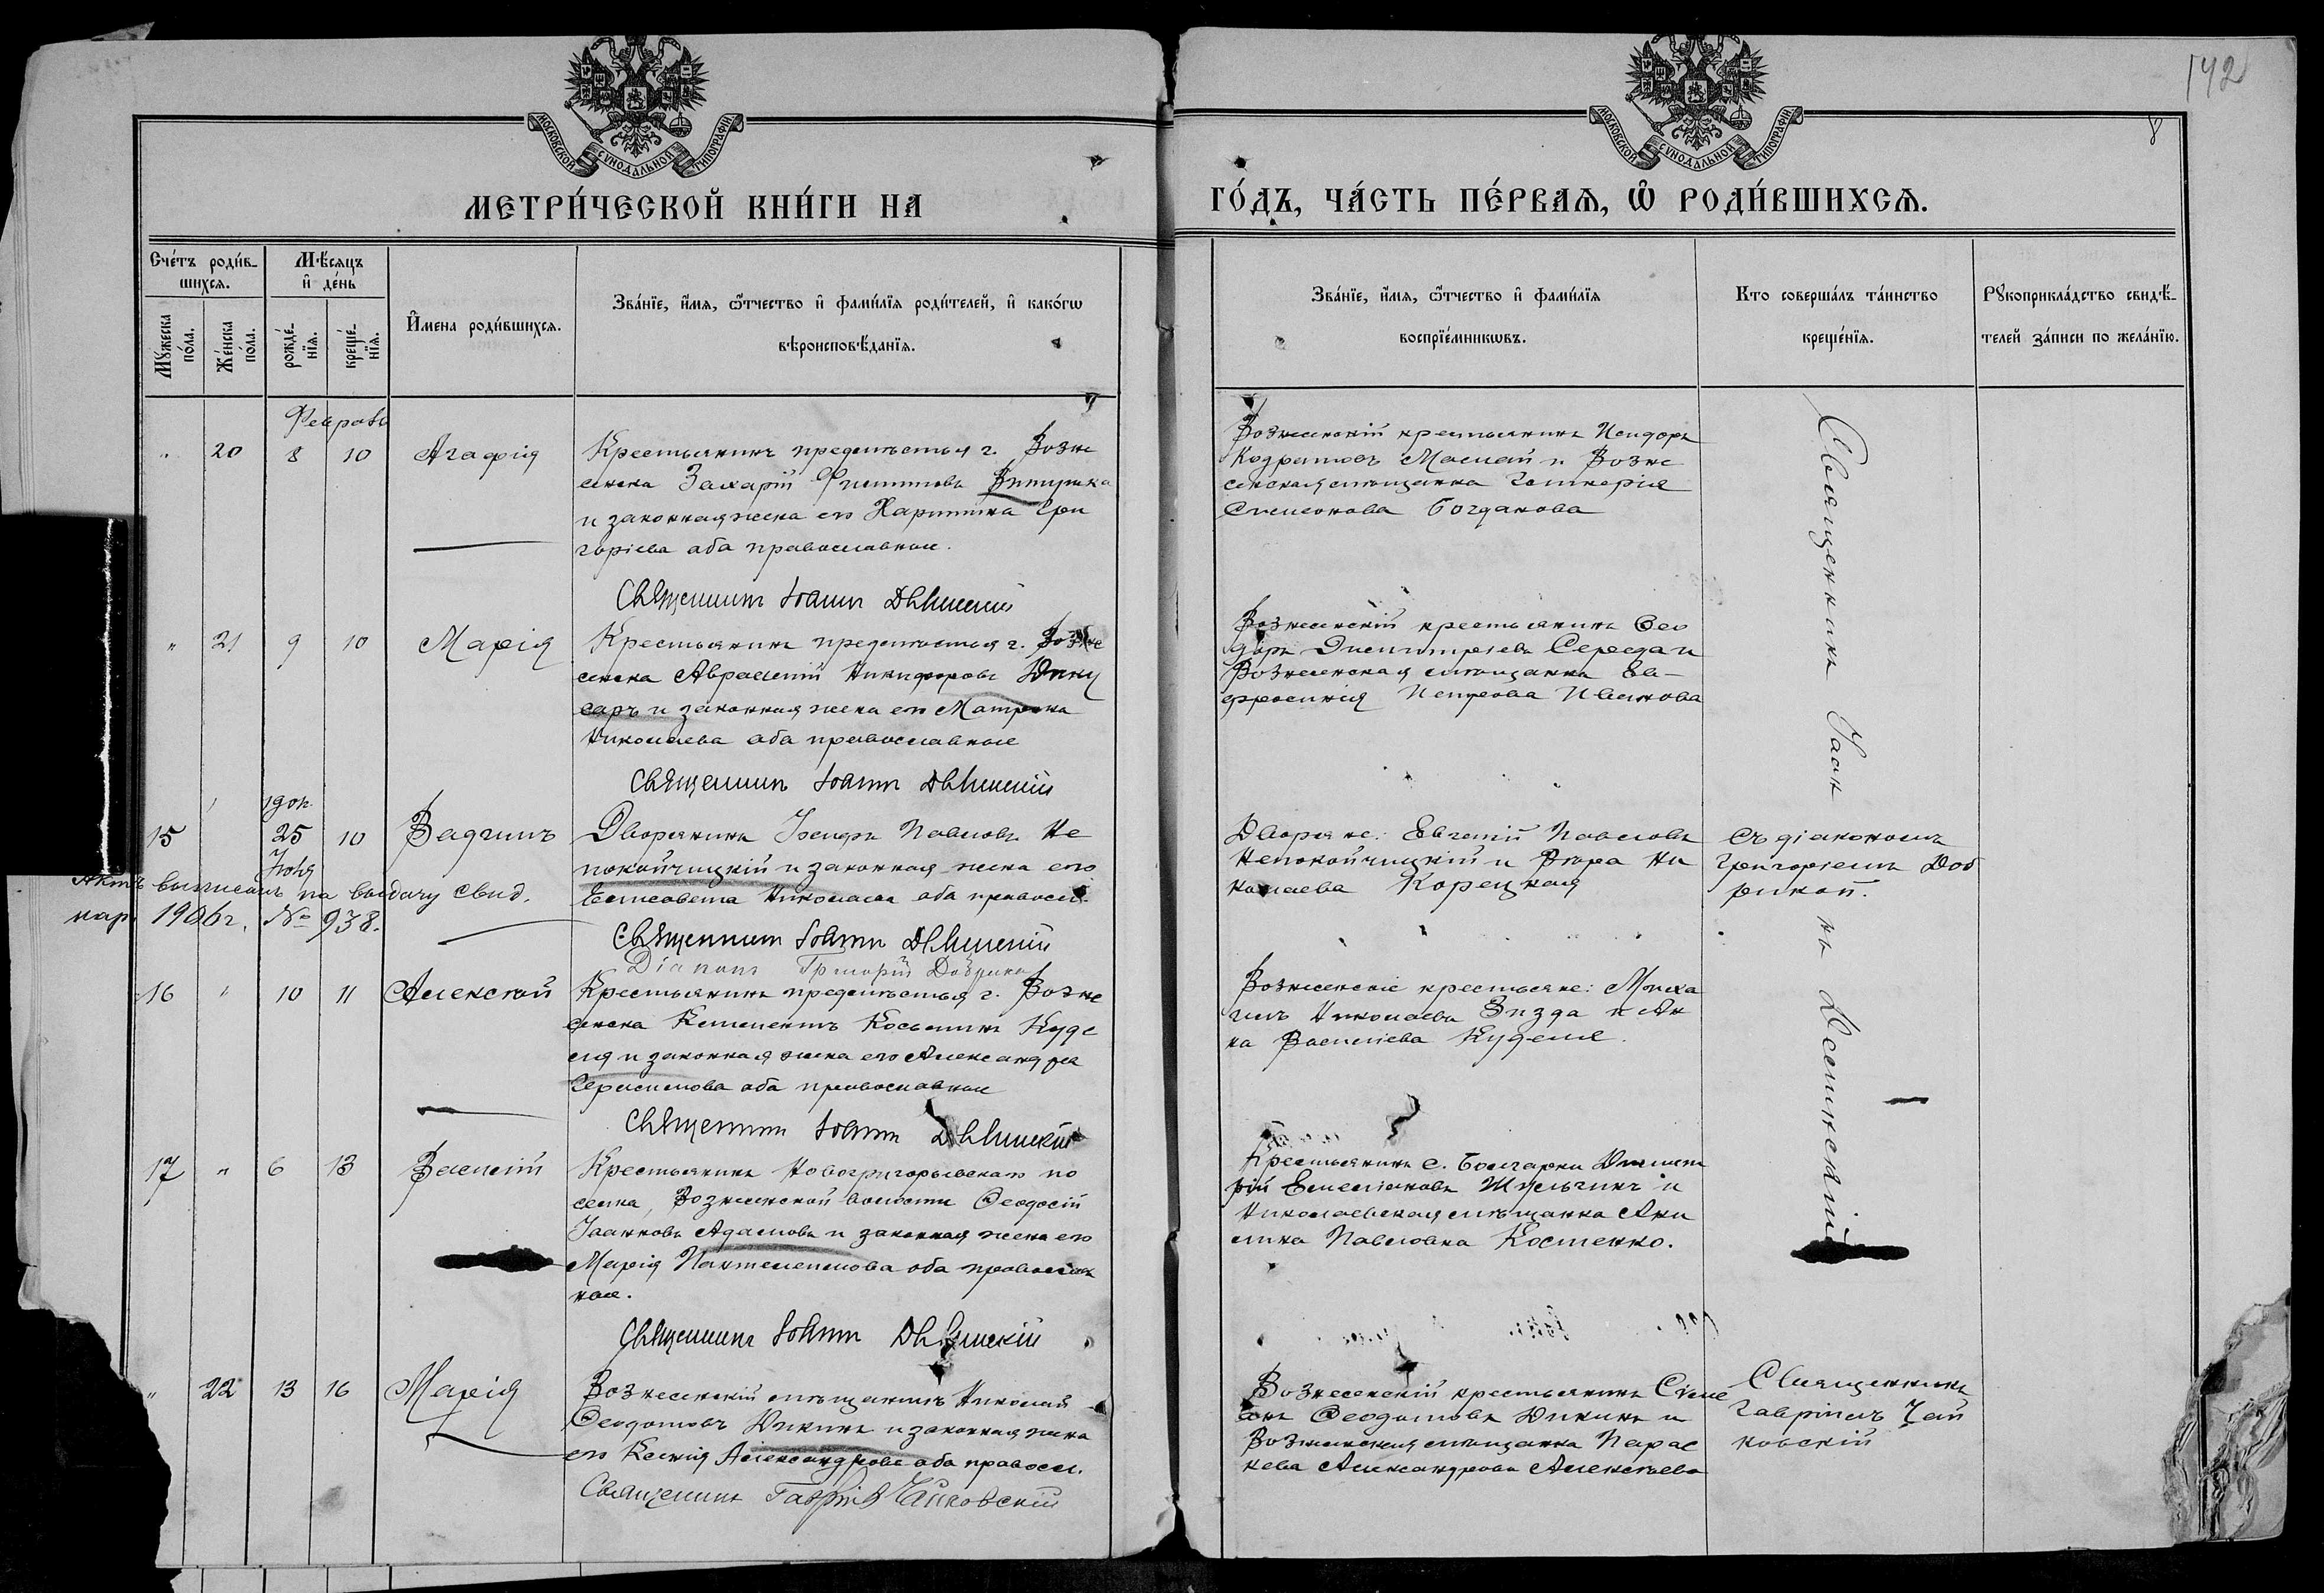 142
8
МОСКОВСКОЙ СУНОДАЛЬНОЙ ТИПОГРАФІИ
МОСКОВСКОЙ СУНОДАЛЬНОЙ ТИПОГРАФІИ
МЕТРИ́ЧЕСКОЙ КНИ́ГИ НА
ГО́ДЪ, ЧА́СТЬ ПЕ́РВАѦ, Ѡ҆ РОДИ́ВШИХСѦ.
Сче́тъ роди́в-
шихсѧ.
Мꙋ́жеска по́ла.
Же́нска по́ла.
Мѣ́сѧцъ
и҆ де́нь
рожде́-
нїѧ.
креще́-
нїѧ.
И҆́мена роди́вшихсѧ.
Зва́нїе, и҆́мѧ, ѻ҆́тчество и҆ фами́лїѧ роди́телей, и҆ како́гѡ
вѣроисповѣ́данїѧ.
Зва́нїе, и҆́мѧ, ѻ҆́тчество и҆ фами́лїѧ
воспрїе́мникѡвъ.
Кто соверша́лъ та́инство
креще́нїѧ.
Рꙋкоприкла́дство свидѣ́-
телей за́писи по жела́нїю.
Февраль
" 20 8 10 Агафія
Крестьянинъ предмѣстья г. Возне
сенска Захарій Филипповъ
и законная жена его Харитина Гри
горіева оба православные.
Священникъ Іоаннъ
Вознесенскій крестьянинъ Исидоръ
Кодратовъ и Возне
сенская мѣщанка Гликерія
Симеонова Богданова
" 21 9 10 Марія
Крестьянинъ предмѣстья г. Возне
сенска Аврамій Никифоровъ
и законная жена его Матрона
Николаева оба православные
Священникъ Іоаннъ
Вознесенскій крестьянинъ Ѳео
доръ Димитріевъ Середа и
Вознесенская мѣщанка Ев-
фросинія Петрова Иванова
15 25 10 Вадимъ
Дворянинъ Іосифъ Павловъ Не
покойчицкій и законная жена его
Елисавета Николаева оба правосл.
Священникъ Іоаннъ
Діаконъ Григорій
Актъ выписанъ на выдачу свид.
1906г. № 938.
Дворяне: Евгеній Павловъ
Непокойчицкій и Вѣра Ни
колаева Корецкая
Съ діакономъ
Григоріемъ
16 " 10 11 Алексѣй
Крестьянинъ предмѣстья г. Возне
сенска Климентъ Косьминъ Куде
ля и законная жена его Александра
Герасимова оба православные
Священникъ Іоаннъ
Вознесенскіе крестьяне: Миха
илъ Николаевъ и Ан
на Васильева Куделя.
17 " 6 13 Василій
Крестьянинъ Новогригорьевскаго по
селка, Вознесенской волости Ѳеодосій
Іоанновъ Адамовъ и законная жена его
Марія Пантелеимова оба православ
ные.
Священникъ Іоаннъ
Крестьянинъ с. Болгарки Димит
рій Емеліановъ и
Николаевская мѣщанка Аки
лина Павловна Костенко.
Священникъ Іоанн
" 22 13 16 Марія
Вознесенскій мѣщанинъ Николай
Ѳеодотовъ Дикинъ и законная жена
его Ксенія Александрова оба правосл.
Священникъ Гавріилъ Чайковскій
Вознесенскій крестьянинъ Симе
онъ Ѳеодотовъ Дикинъ и
Вознесенская мѣщанка Парас
кева Александрова Алексѣева
Священникъ
Гавріилъ Чай
ковскій